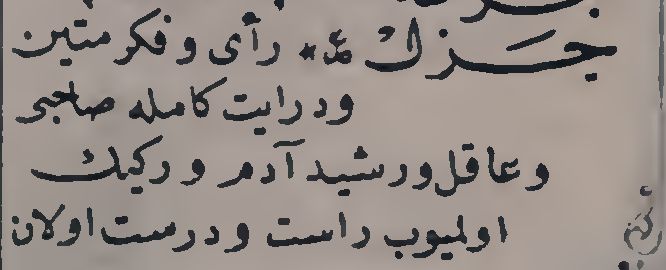 جزل مد* رأى و فكر متين
ودرايت كامله صاحبى
و عاقل ورشيد آدم و ركيك
اولميوب راست و درست اولان